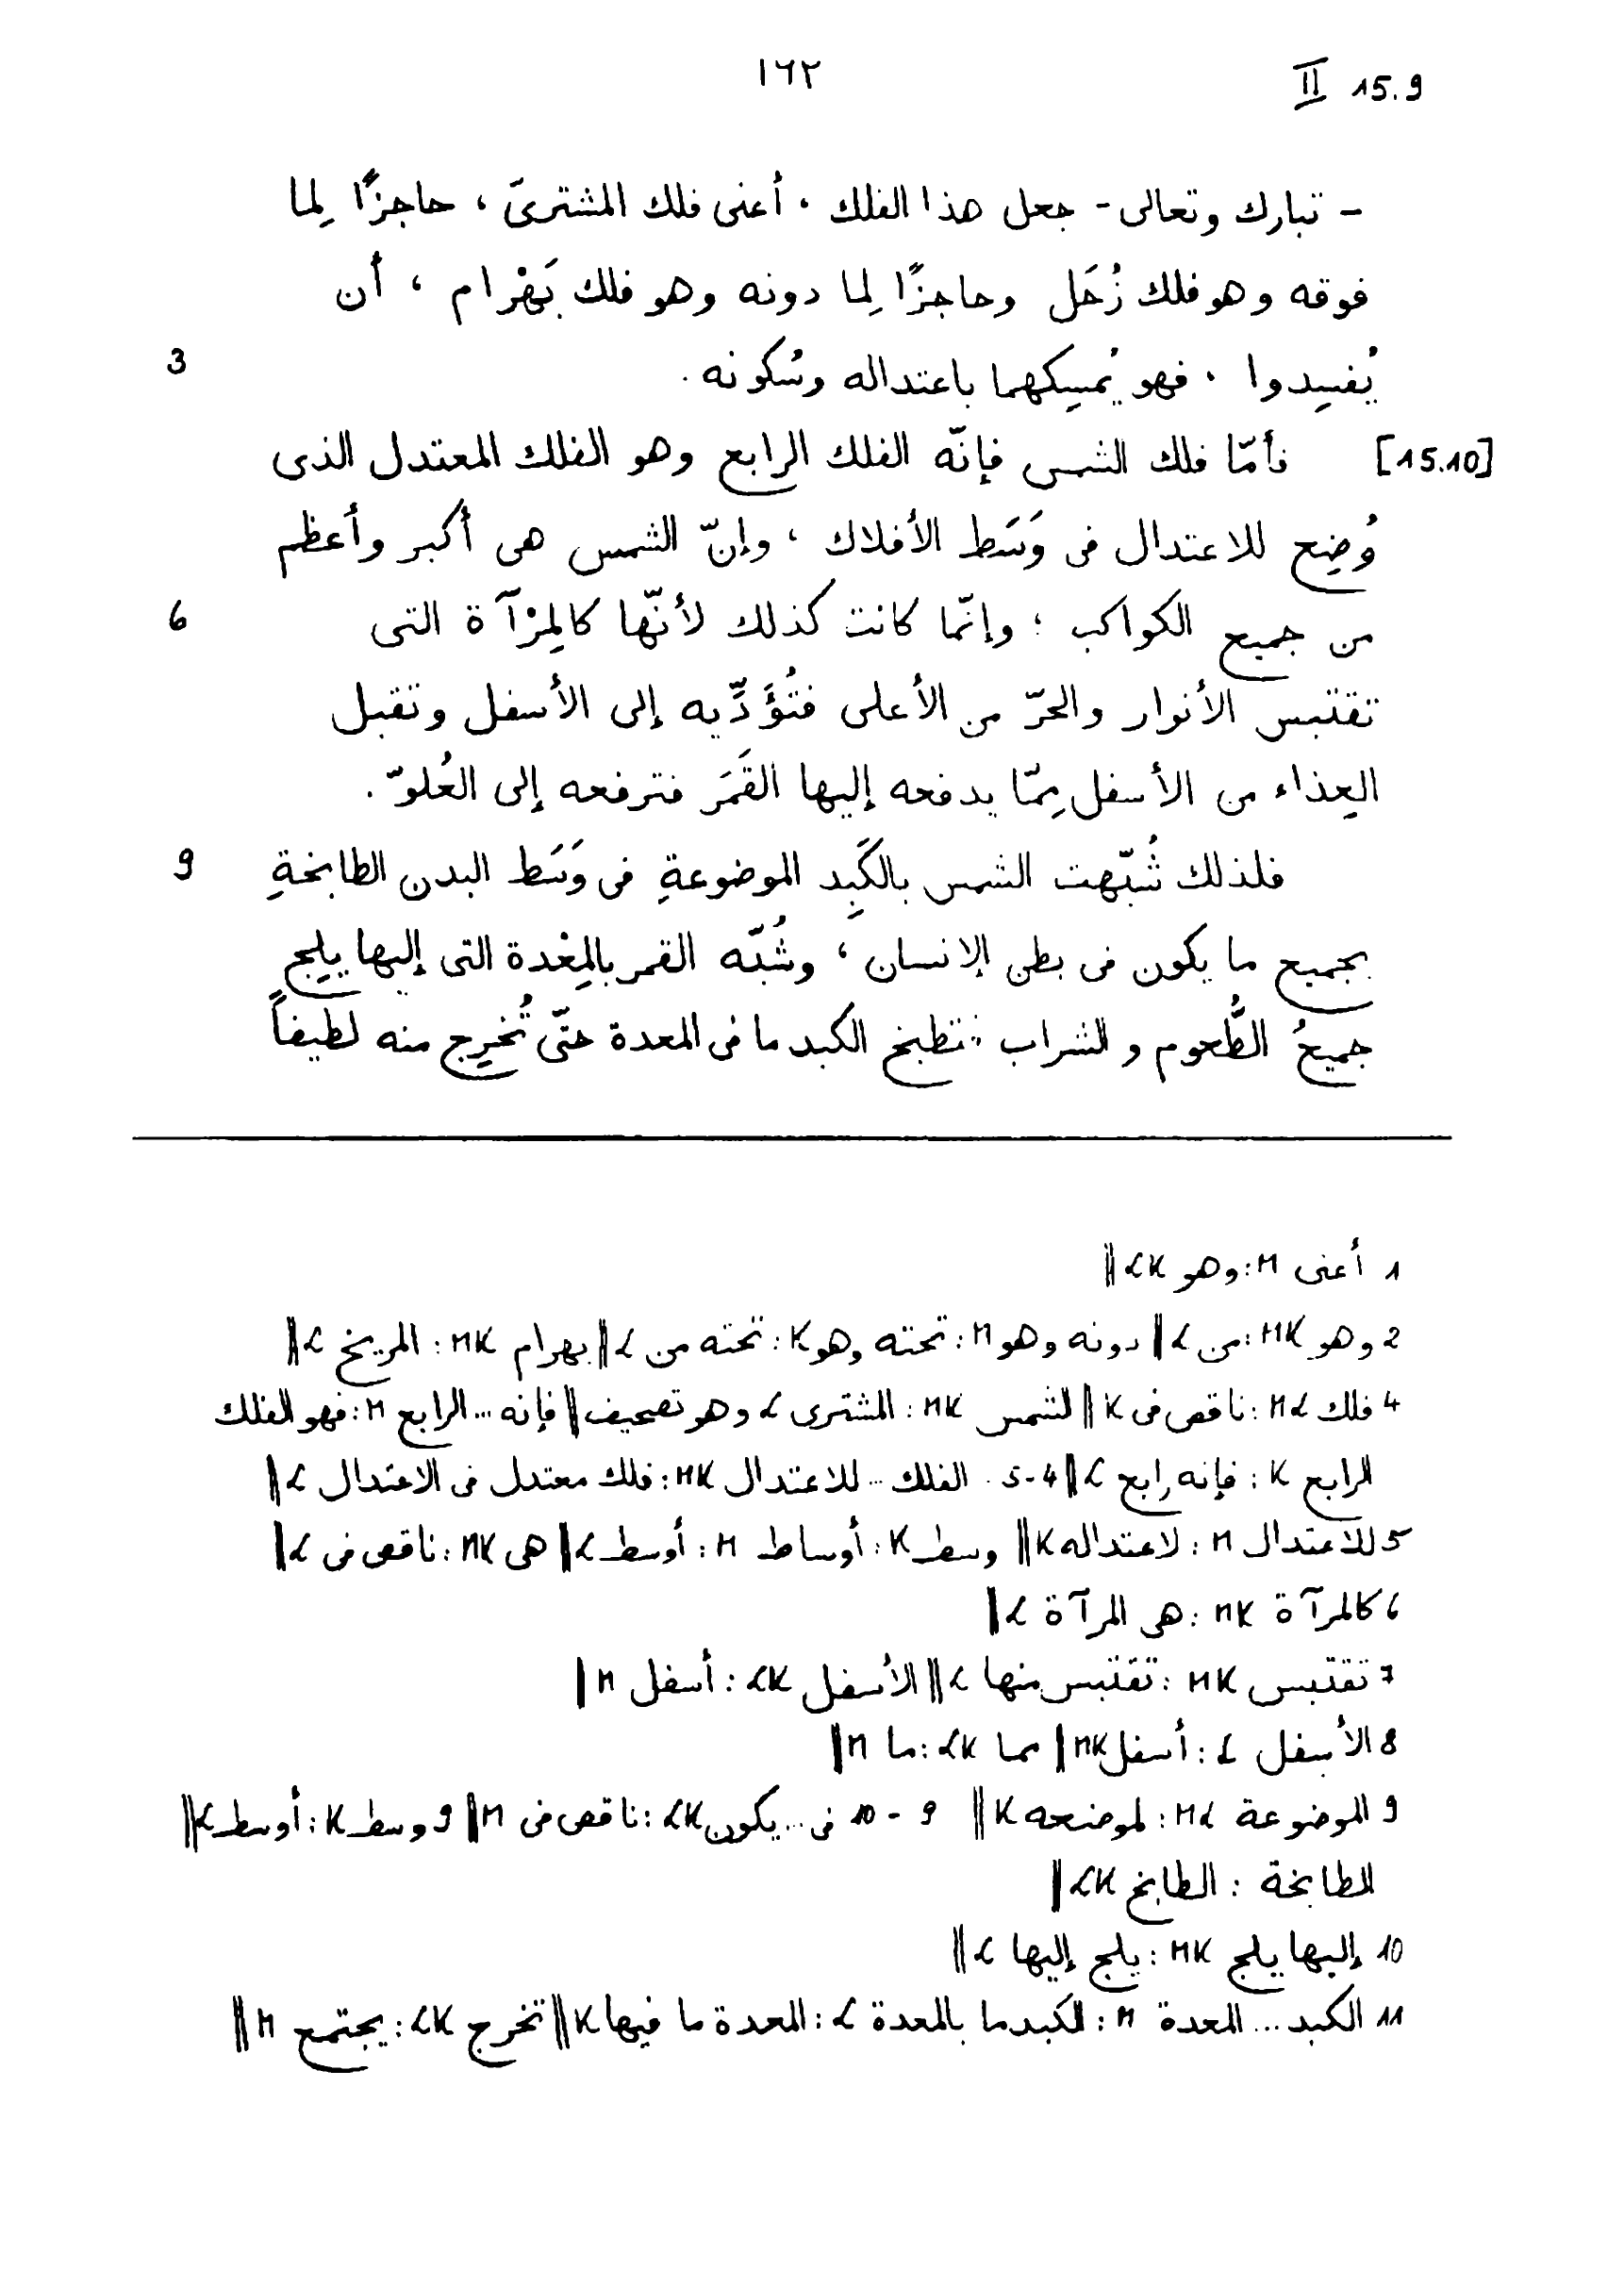 ١٦٢
II 15.9
- تبارك وتعالى - جعل هذا الفلك ، أعنى فلك المشترىّ ، حاجزًا لِما
فوقه وهو فلك زُحَل وحاجزًا لِما دونه وهو فلك بَهْرام ، أن
يُفسِدوا ، فهو يُمسِكهما باعتداله وسُكونه . 3
[15.10] فأمّا فلك الشمس فإنّه الفلك الرابع وهو الفلك المعتدل الذى
وُضِع للاعتدال فى وَسَط الأفلاك ، وإنّ الشمس هى أكبر وأعظم
من جميع الكواكب ؛ وإنّما كانت كذلك لأنّها كالمِرْآة التى 6
تقتبس الأنوار والحرّ من الأعلى فتُؤَدِّيه إلى الأسفل وتقبل
الغِذاء من الأسفل مِمّا يدفعه إليها القَمَر فترفعه إلى العُلوّ .
فلذلك شُبّهت الشمس بالكَبِد الموضوعةِ فى وَسَط البدن الطابخةِ 9
بجميع ما يكون فى بطن الإنسان ، وشُبّه القمر بالمِعْدة التى إليها يلِج
جميعُ الطُّعوم والشراب ؛ تطبخ الكبد ما فى المعدة حتّى تُخرِج منه لطيفاً
1 أعنى M : وهو LK ||
2 وهو MK : من L || دونه وهو M : تحته وهو K : تحته من L || بهرام MK : المريخ L ||
4 فلك ML : ناقص فى K || الشمس MK : المشترى L وهو تصحيف || فإنه ... الرابع M : فهو الفلك
الرابع K : فإنه رابع L || 4-5 الفلك ... للاعتدال MK : فلك معتدل فى الاعتدال L ||
5 للاعتدال M : لاعتداله K || وسط K : أوساط M : أوسط L || هى MK : ناقص فى L ||
6 كالمرآة MK : هى المرآة L ||
7 تقتبس MK : تقتبس منها L || الأسفل LK : أسفل M ||
8 الأسفل L : أسفل MK || مما LK : ما M ||
9 الموضوعة ML : لموضعه K || 9 - 10 فى ... يكون LK : ناقص فى M || 9 وسط K : أوسط L ||
الطابخة : الطابخ LK ||
10 إليها يلج MK : يلج إليها L ||
11 الكبد ... المعدة M : الكبد ما بالمعدة L : المعدة ما فيها K || تخرج LK : يجتمع M ||